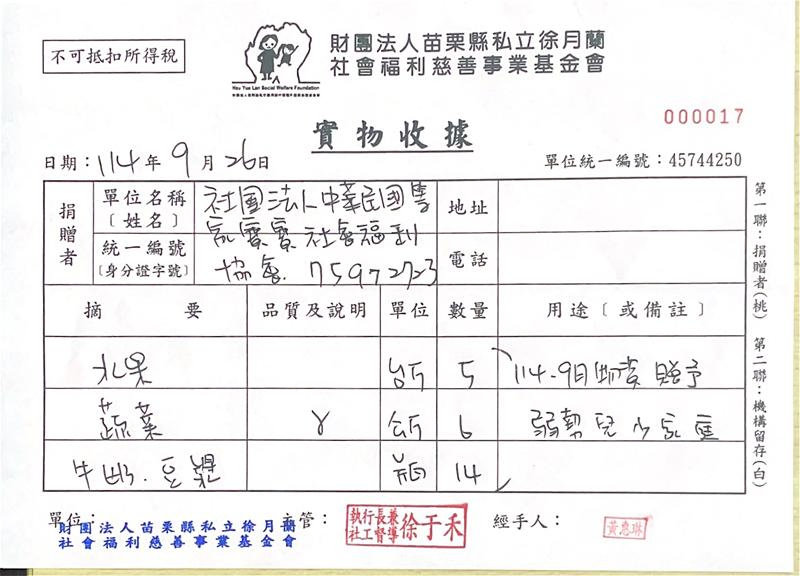 不可抵扣所得稅
Hsu Yue Lan Social Welfare Foundation
財團法人苗栗縣私立徐月蘭
社會福利慈善事業基金會
000017
實物收據
日期：114年9月26日
單位統一編號：45744250
捐贈者
單位名稱
〔姓名〕
社團法人中華民國
家寶寶社會福利
統一編號
〔身分證字號〕
協會 75972723
地址
電話
摘要 品質及說明 單位 數量 用途〔或備註〕
水果 台斤 5 114.9月物資贈予
蔬菜 公斤 6 弱勢兒少家庭
牛奶.豆漿 瓶 14
第一聯：捐贈者(桃) 第二聯：機構留存(白)
單位：
財團法人苗栗縣私立徐月蘭
社會福利慈善事業基金會
主管：
執行長兼
社工督導
徐于禾
經手人：
黃惠琳